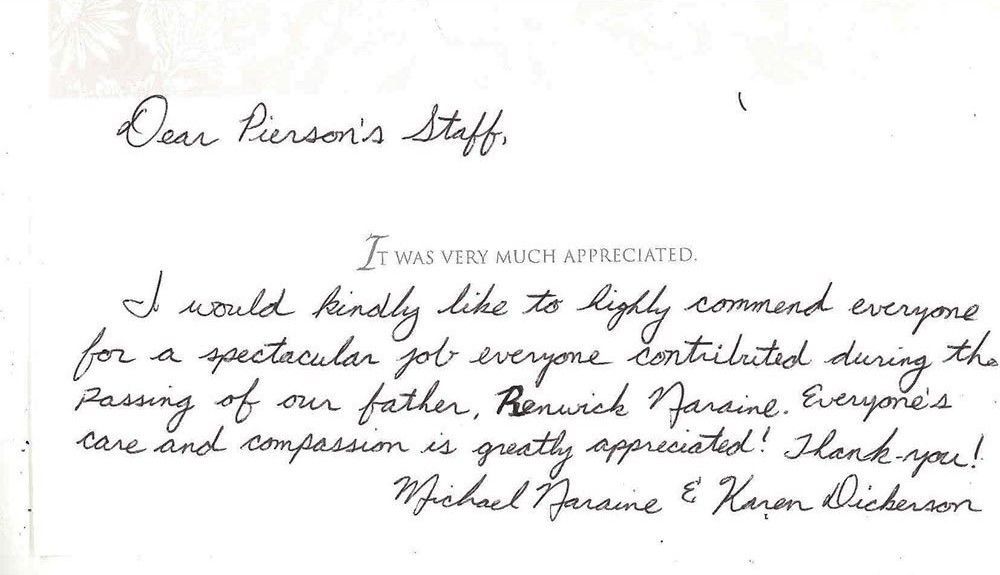 Dear Pierson's Staff,
IT WAS VERY MUCH APPRECIATED.
I would kindly like to highly commend everyone
for a spectacular job everyone contributed during the
passing of our father, Renwick Naraine. Everyone's
care and compassion is greatly appreciated! Thank-you!
Michael Naraine & Karen Dickerson